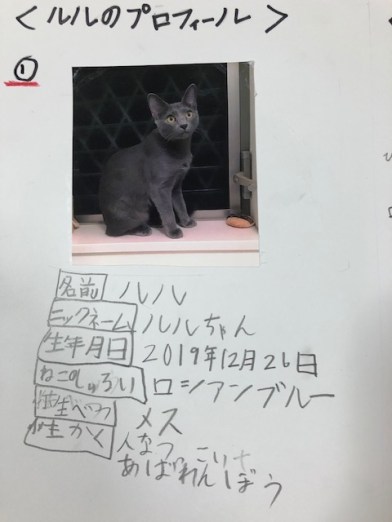 <ルルのプロフィール>
①
名前 ルル
ニックネーム ルルちゃん
生年月日 2019年12月26日
ねこのしゅるい ロシアンブルー
性べつ メス
性かく 人なつっこい
あばれんぼう